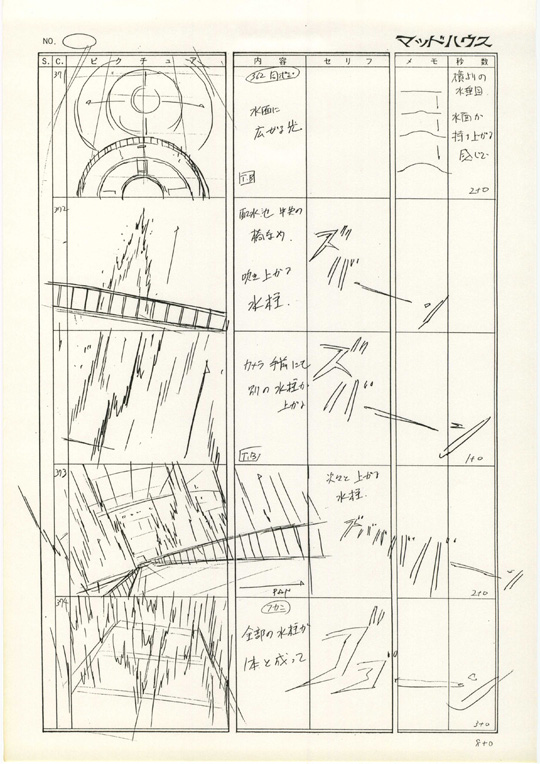 NO.
マッドハウス
S. C. ピクチュア 内容 セリフ メモ 秒数
371
水面に
広がる光
T.B
横からの
水面が
持ち上がる
感じで
2+0
372
取水池 中央の
橋なめ.
吹き上がる
水柱.
ズ
バ
カメラ手前にて
別の水柱が
上がる
T.B
ズ
バ
1+0
373
次々と上がる
水柱.
ズババババ
PAN
2+0
374
フカン
全部の水柱が
1本と成って
3+0
8+0